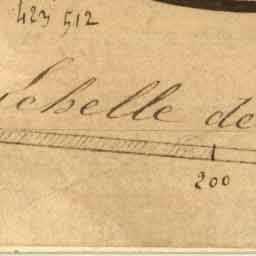 423 512
Echelle de
200